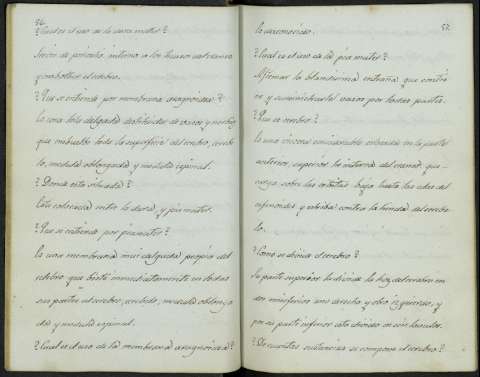 56
¿Cual es el uso de la dura mater?
Servir de pericráneo interno a los huesos del craneo
y embolber el cerebro.
¿Que se entiende por membrana aragnoidea?
Es una tela delgada destituida de vasos y nerbios
que embuelbe toda la superficie del cerebro, cerebe
lo, medula oblongada y medula espinal.
¿Donde está situada?
Está colocada entre la dura, y pia mater.
¿Que se entiende por pia mater?
Es una membrana mui delgada propia del
celebro que biste inmediatamente en todas
sus partes el cerebro, cerebelo, medula oblonga
da y medula espinal.
¿Cual es el uso de la membrana aragnoidea?
57
¿Cual es el uso de la pia mater?
Afirmar la blandisima entraña que contie
ne y suministrarle vasos por todas partes.
¿Que es cerebro?
Es una viscera considerable situada en la parte
anterior, superior e interna del craneo, que
carga sobre las orbitas baja hasta las alas del
esfenoides y estriba contra la tienda del cerebe
lo.
¿Como se divide el cerebro?
Su parte superior la divide la hoz del cerebro en
dos emisferios uno derecho y otro izquierdo, y
por su parte inferior está dividido en seis lóbulos.
¿De cuantas sustancias se compone el cerebro?